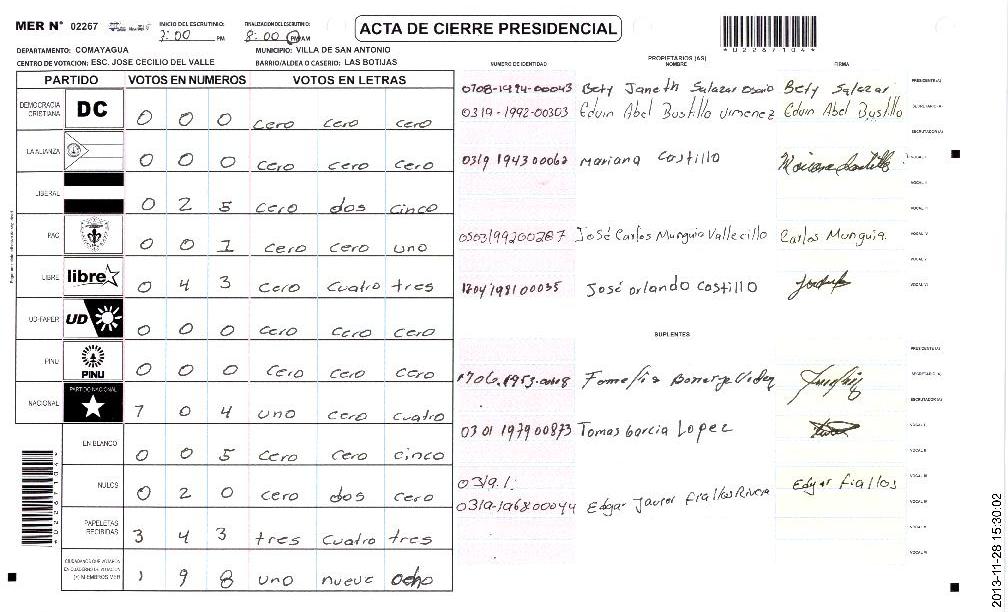 MER N° 02267 INICIO DEL ESCRUTINIO: 3:00 PM FINALIZACION DEL ESCRUTINIO: 8:00 PM AM
ACTA DE CIERRE PRESIDENCIAL
*02267104*
DEPARTAMENTO: COMAYAGUA MUNICIPIO: VILLA DE SAN ANTONIO
CENTRO DE VOTACION: ESC. JOSE CECILIO DEL VALLE BARRIO/ALDEA O CASERIO: LAS BOTIJAS
PARTIDO VOTOS EN NUMEROS VOTOS EN LETRAS
DEMOCRACIA CRISTIANA DC 0 0 0 cero cero cero
LA ALIANZA 0 0 0 cero cero cero
LIBERAL 0 2 5 cero dos cinco
PAC 0 0 1 cero cero uno
LIBRE libre 0 4 3 cero cuatro tres
UD-FAPER UD 0 0 0 cero cero cero
PINU PINU 0 0 0 cero cero cero
NACIONAL PARTIDO NACIONAL 1 0 4 uno cero cuatro
EN BLANCO 0 0 5 cero cero cinco
NULOS 0 2 0 cero dos cero
PAPELETAS RECIBIDAS 3 4 3 tres cuatro tres
CIUDADANOS QUE VOTARON EN CUADERNO DE VOTACION (+) MIEMBROS MER 1 9 8 uno nueve ocho
PROPIETARIOS (AS)
NUMERO DE IDENTIDAD NOMBRE FIRMA
0708-1994-00043 Bety Janeth Salazar Osorio Bety Salazar PRESIDENTE(A)
0319-1992-00303 Edwin Abel Bustillo Jimenez Edwin Abel Bustillo SECRETARIO(A)
ESCRUTADOR(A)
0319 1943 00062 Mariana Castillo VOCAL I
VOCAL II
VOCAL III
0503199200287 José Carlos Munguia Vallecillo Carlos Munguia. VOCAL IV
VOCAL V
1204198100035 José Orlando Castillo VOCAL VI
SUPLENTES
PRESIDENTE(A)
SECRETARIO(A)
ESCRUTADOR(A)
0301 197900873 Tomas Garcia Lopez VOCAL I
VOCAL II
0319.1: VOCAL III
0319-196800044 Edgar Javier Fiallos Rivera Edgar Fiallos VOCAL IV
VOCAL V
VOCAL VI
2013-11-28 15:30:02